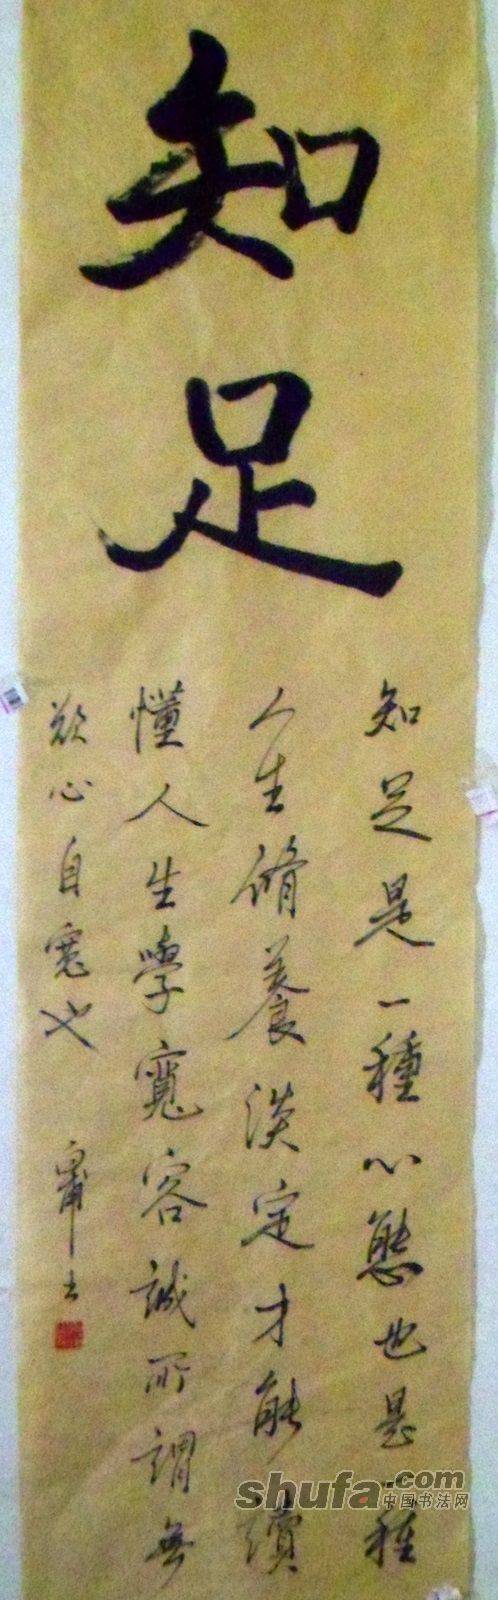 知足
知足是一種心態也是一種
人生脩養淡定才能讀
懂人生學寬容誠所謂無
欲心自寬也
shufa.com
中国书法网